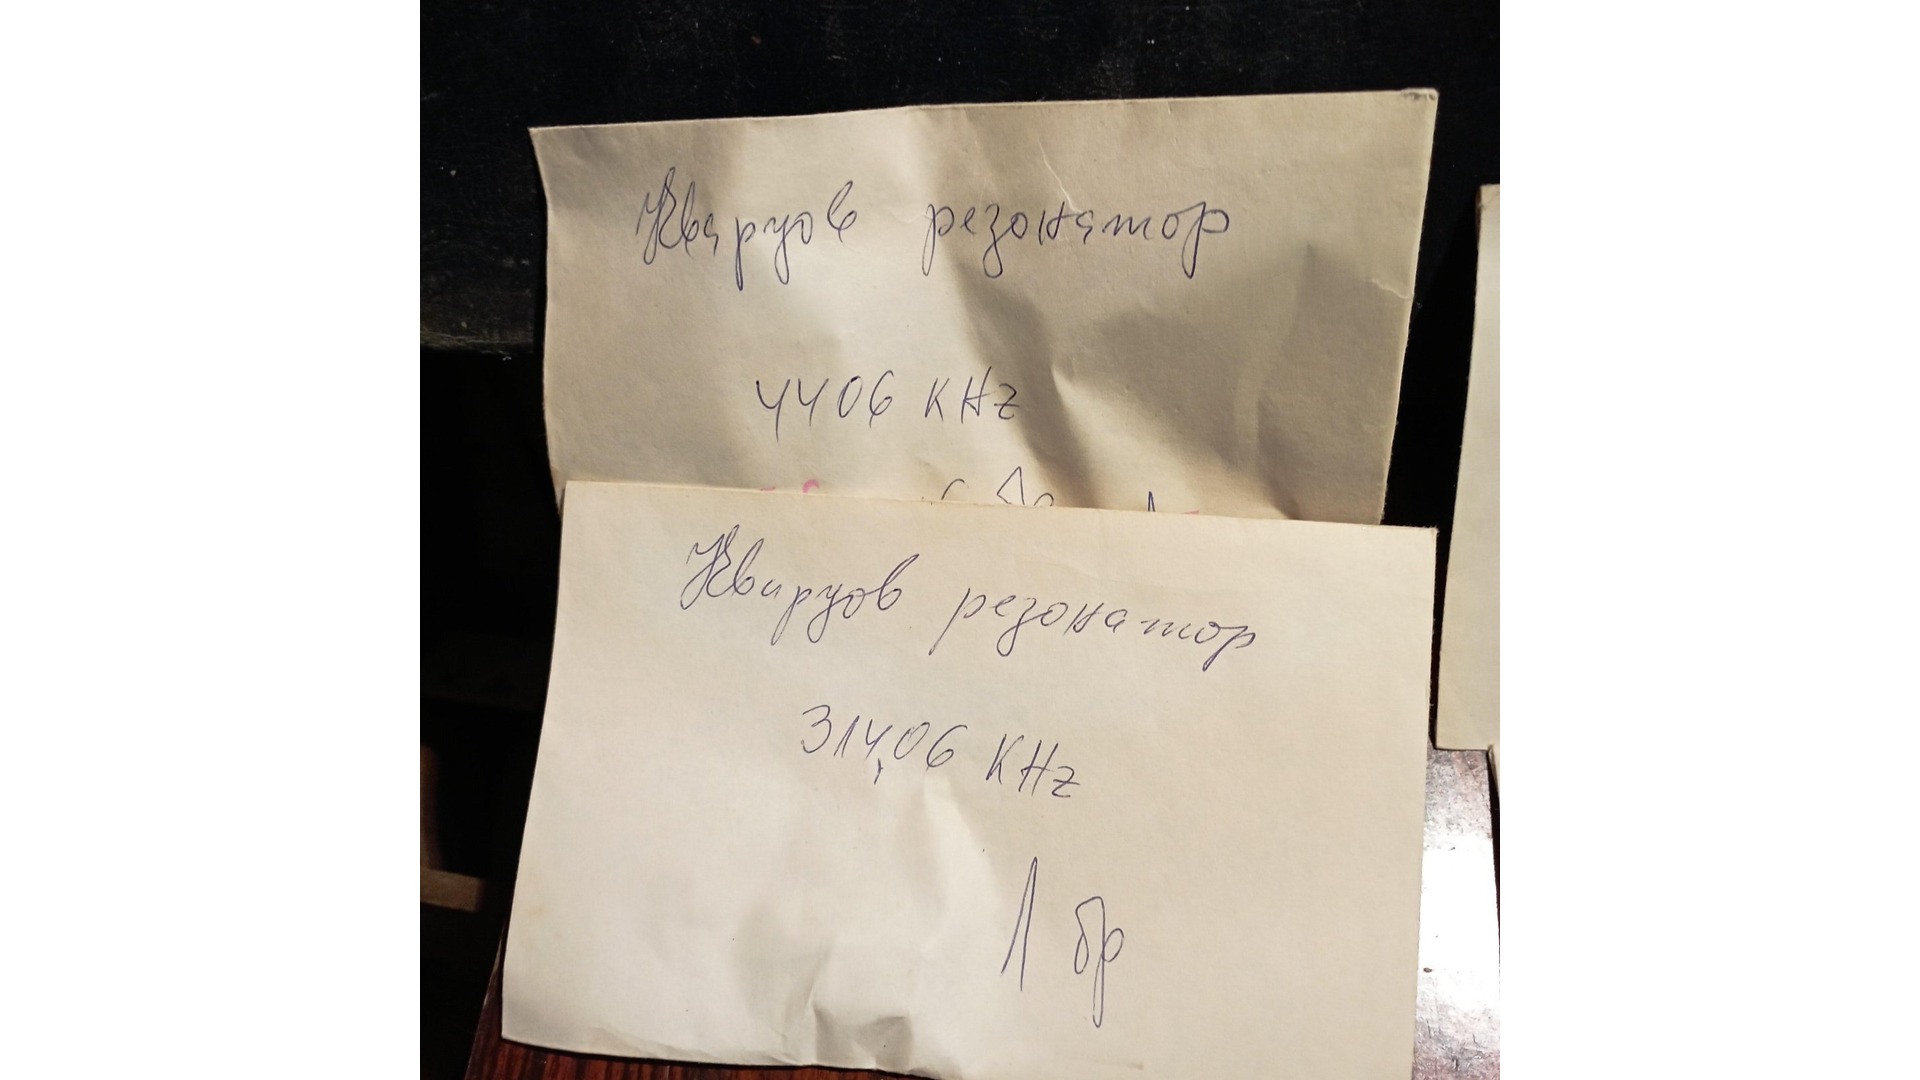 Кварцов резонатор
4406 KHz
Кварцов резонатор
314,06 KHz
1 бр